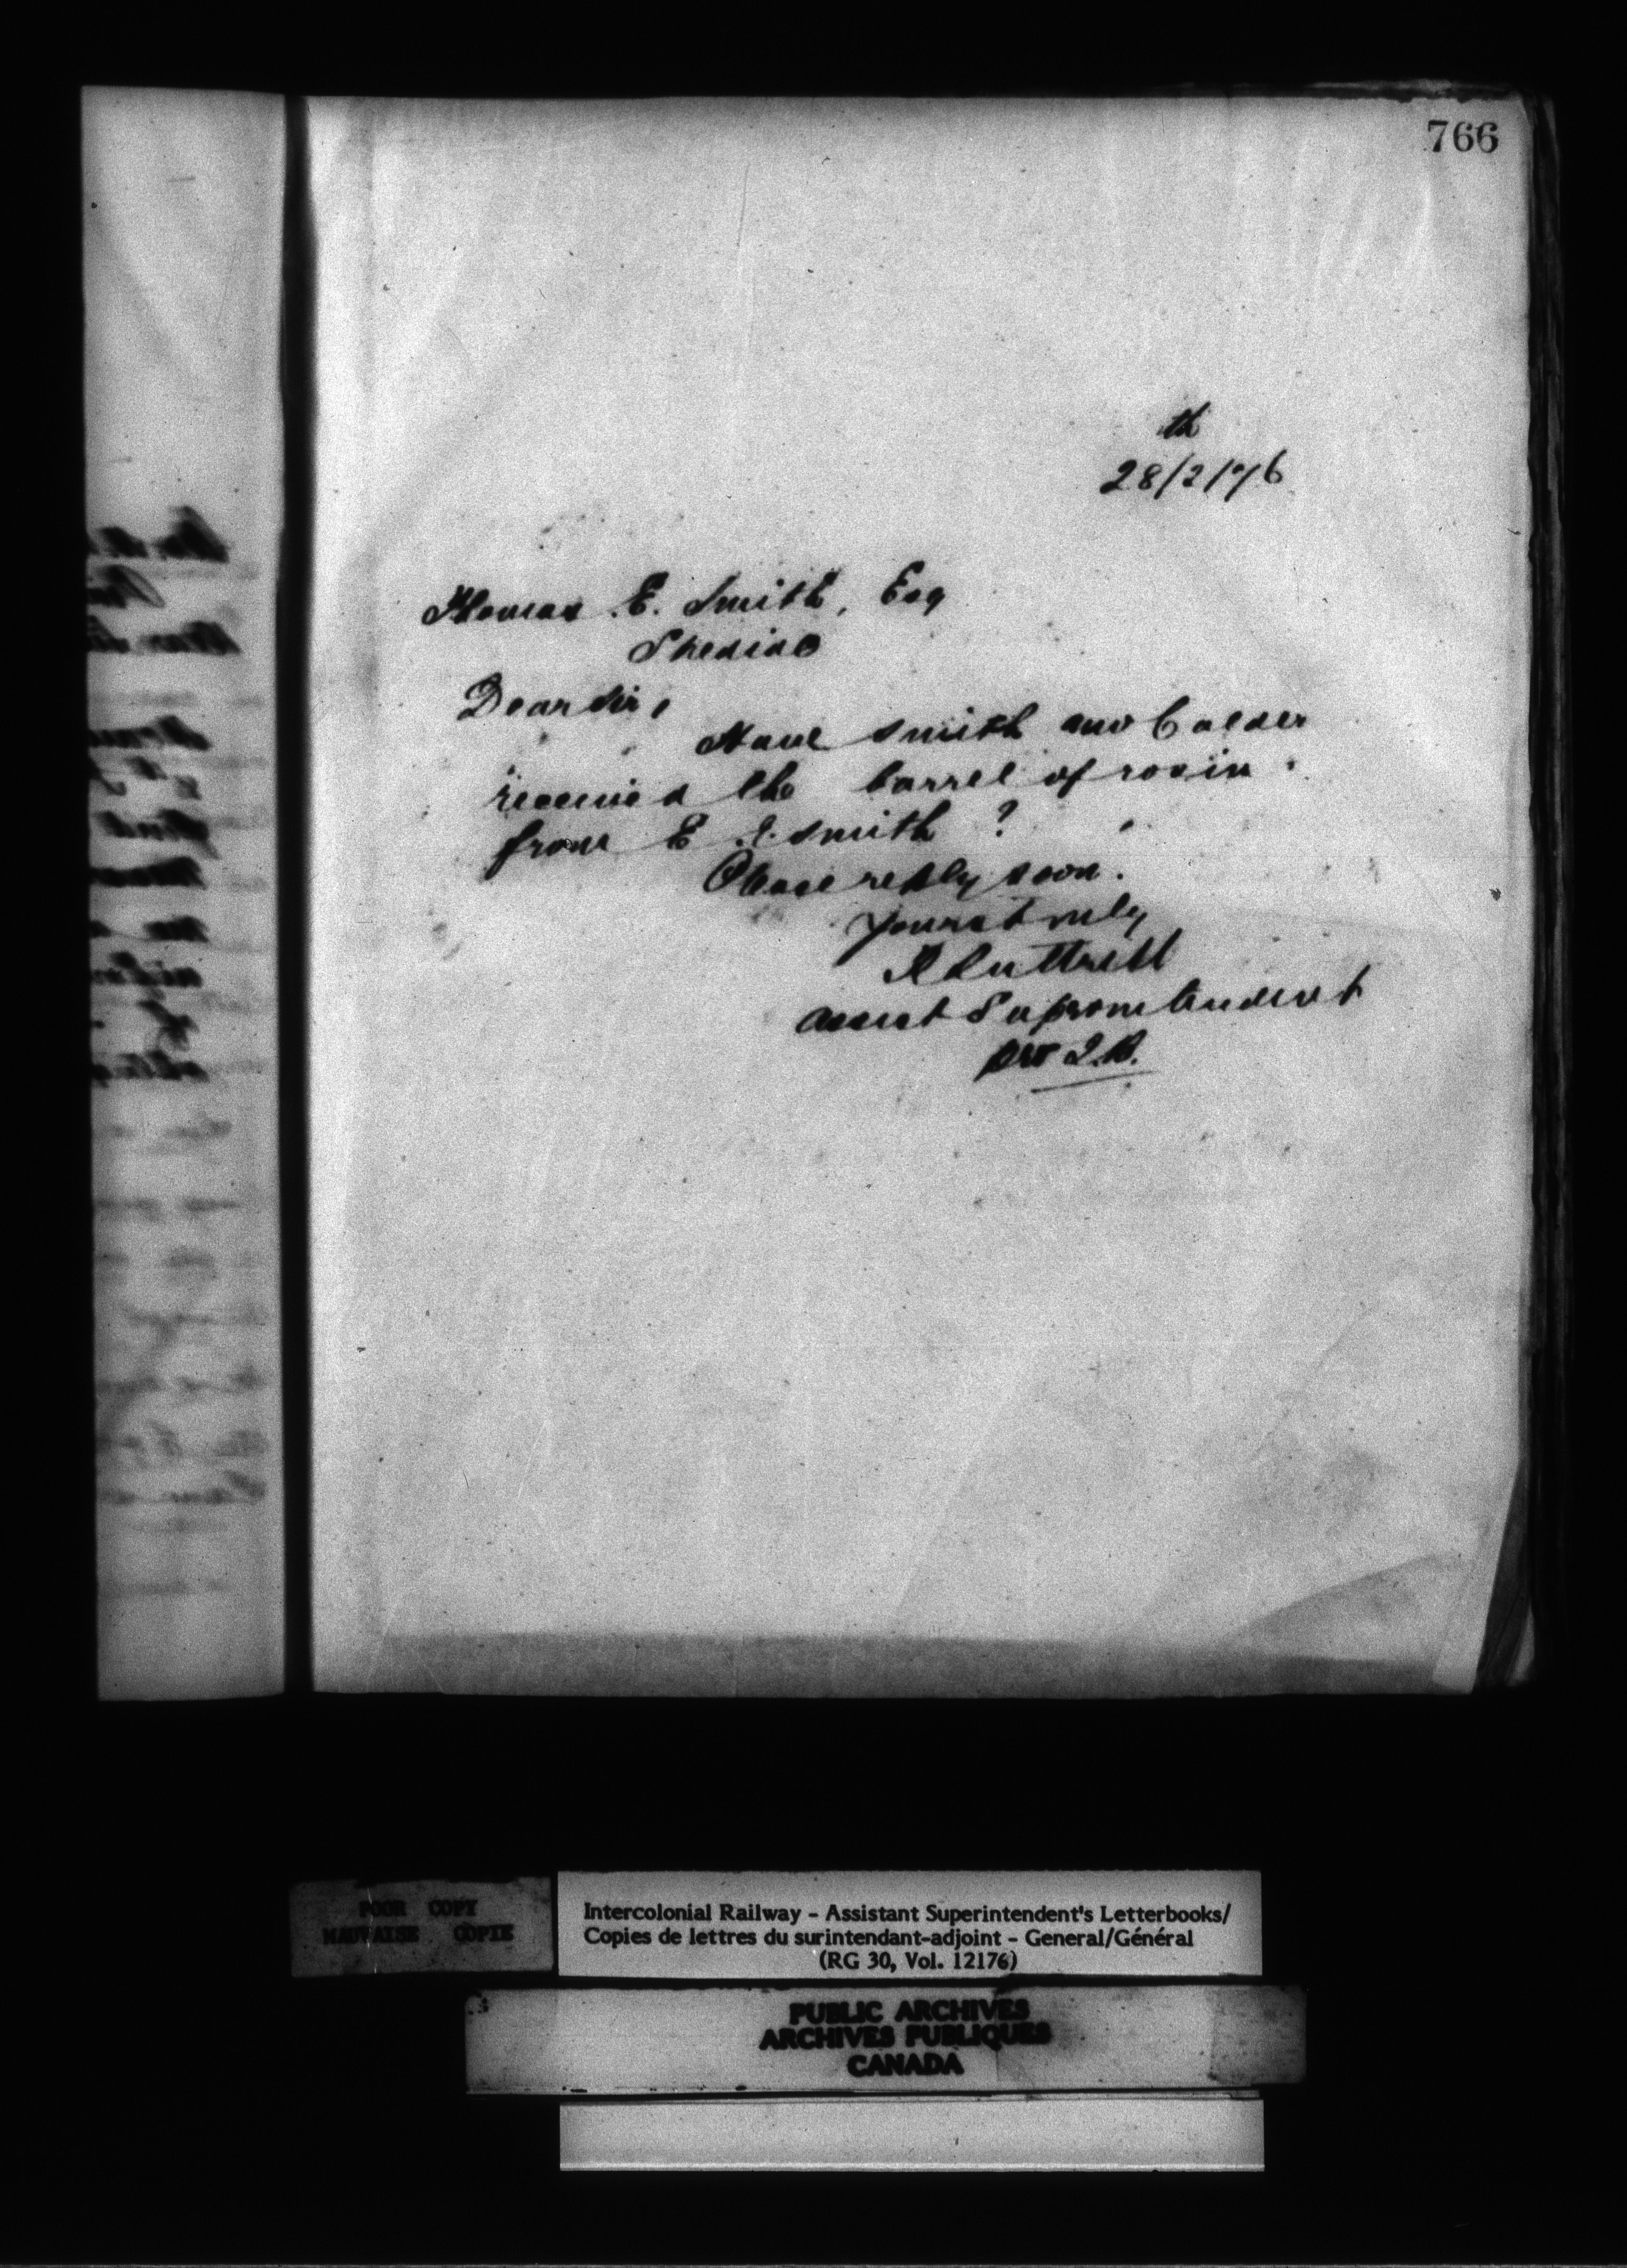 766
th
28/2/76
Thomas E. Smith, Esq
Shediac
Dear Sir,
Have Smith and Calder
received the barrel of rosin
from E. E. Smith ?
Please reply soon.
Yours truly
R Luttrell
Assist Supromtendent
per
POOR COPY
MAUVAISE COPIE
Intercolonial Railway - Assistant Superintendent's Letterbooks/
Copies de lettres du surintendant-adjoint - General/Général
(RG 30, Vol. 12176)
PUBLIC ARCHIVES
ARCHIVES PUBLIQUES
CANADA